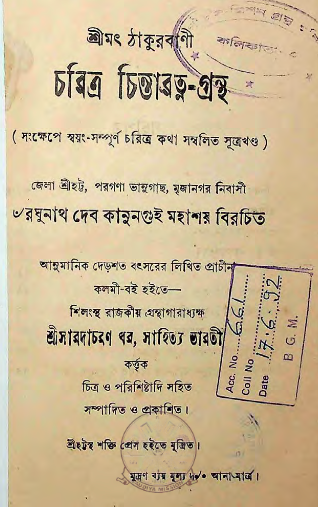 শ্রীমৎ ঠাকুরবাণী
চরিত্র চিন্তারত্ন-গ্রন্থ
( সংক্ষেপে স্বয়ং-সম্পূর্ণ চরিত্র কথা সম্বলিত সূত্রখণ্ড )
জেলা শ্রীহট্ট, পরগণা ভানুগাছ, মুজানগর নিবাসী
৺রঘুনাথ দেব কানুনগুই মহাশয় বিরচিত
আনুমানিক দেড়শত বৎসরের লিখিত প্রাচীন
কলমী-বই হইতে—
শিলংস্থ রাজকীয় গ্রন্থাগারাধ্যক্ষ
শ্রীসারদাচরণ ধর, সাহিত্য ভারতী
কর্ত্তৃক
চিত্র ও পরিশিষ্টাদি সহিত
সম্পাদিত ও প্রকাশিত।
শ্রীহট্টস্থ শক্তি প্রেস হইতে মুদ্রিত।
মুদ্রণ ব্যয় মূল্য ৷৵০ আনা মাত্র।
কলিকাতা
Acc. No. 661
Coll No
Date 17.6.92
B G M.